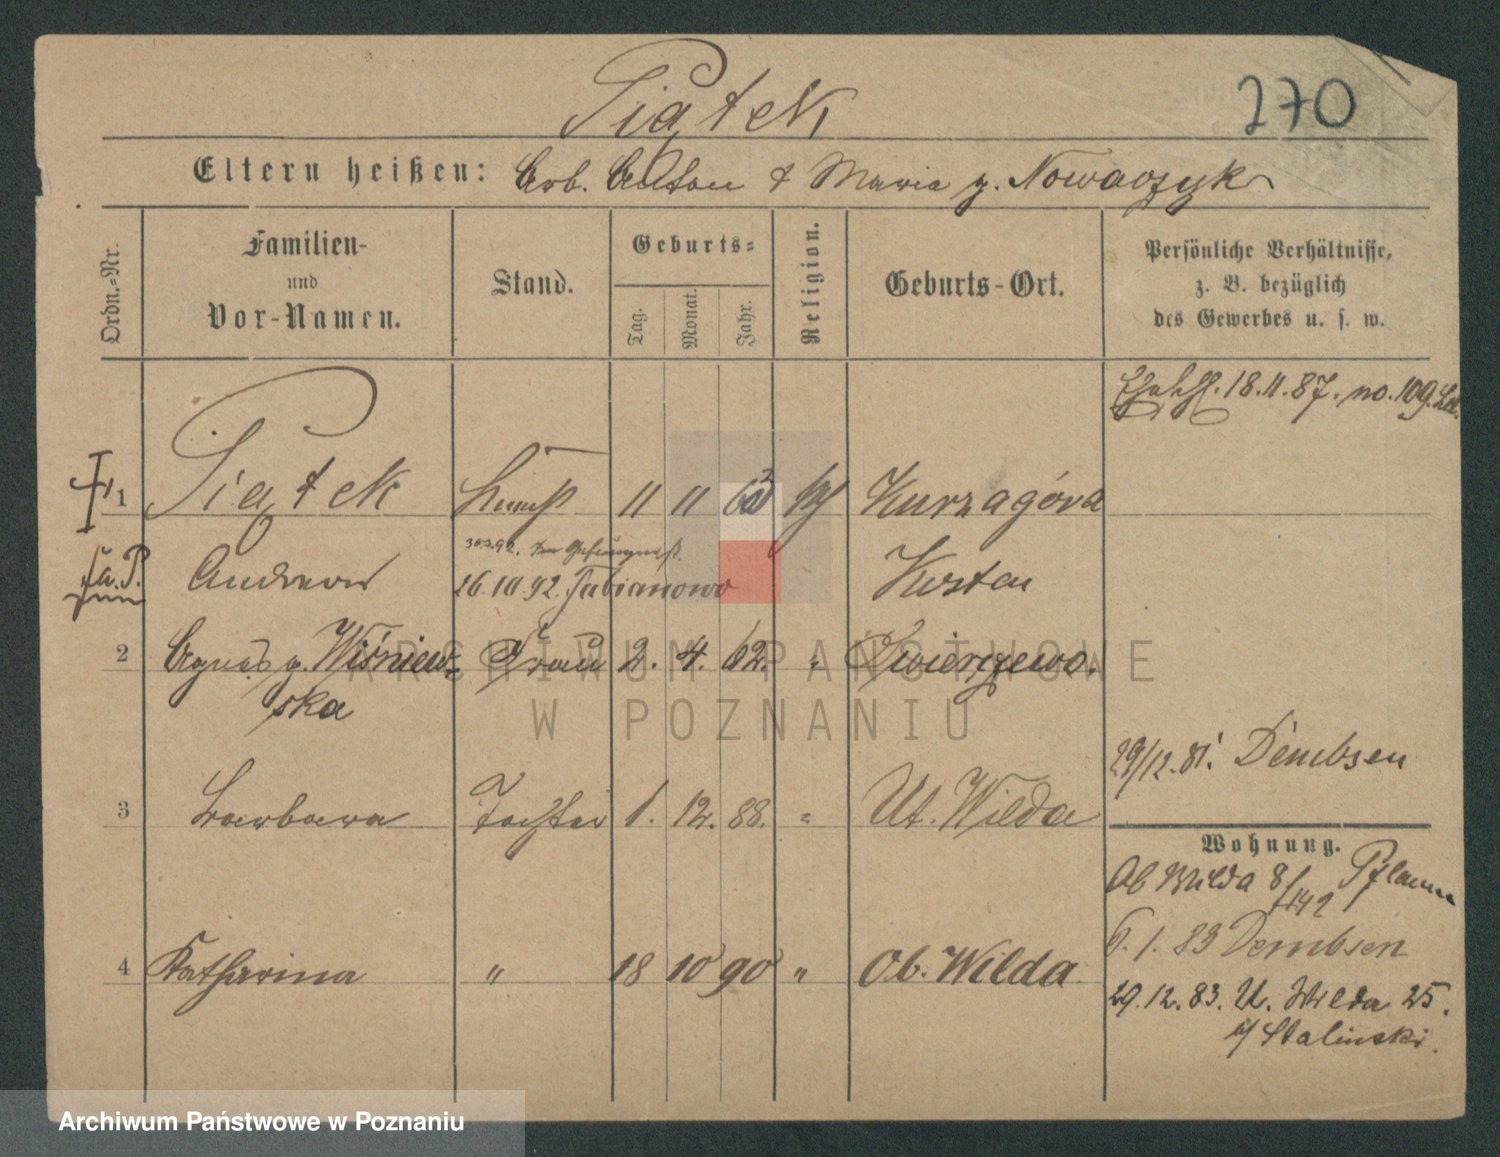 Piątek
270
Eltern heißen: Arb. Anton & Maria g. Nowaczyk
Ordn.-Nr.
Familien-
und
Vor-Namen.
Stand.
Geburts-
Tag.
Monat.
Jahr.
Religion.
Geburts-Ort.
Persönliche Verhältnisse,
z. B. bezüglich
des Gewerbes u. s. w.
18.11.87. no. 109.
1 Piątek 11 11 Kurzagóra
Andreas 26.10.92. Fabianowo Kosten
2 Agnes g. Wiśniew-
ska
Frau 2. 4. 62. " Zwierzewo.
29/12. 81. Dembsen
3 Barbara Tochter 1. 12. 88. " Ut. Wilda
Wohnung.
Ob Wilda 8/142 Pflaum
4 Katharina " 18 10 90 " Ob. Wilda
6. 1. 83 Dembsen
29. 12. 83. U. Wilda 25.
b/ Stalinski.
ARCHIWUM PAŃSTWOWE
W POZNANIU
Archiwum Państwowe w Poznaniu